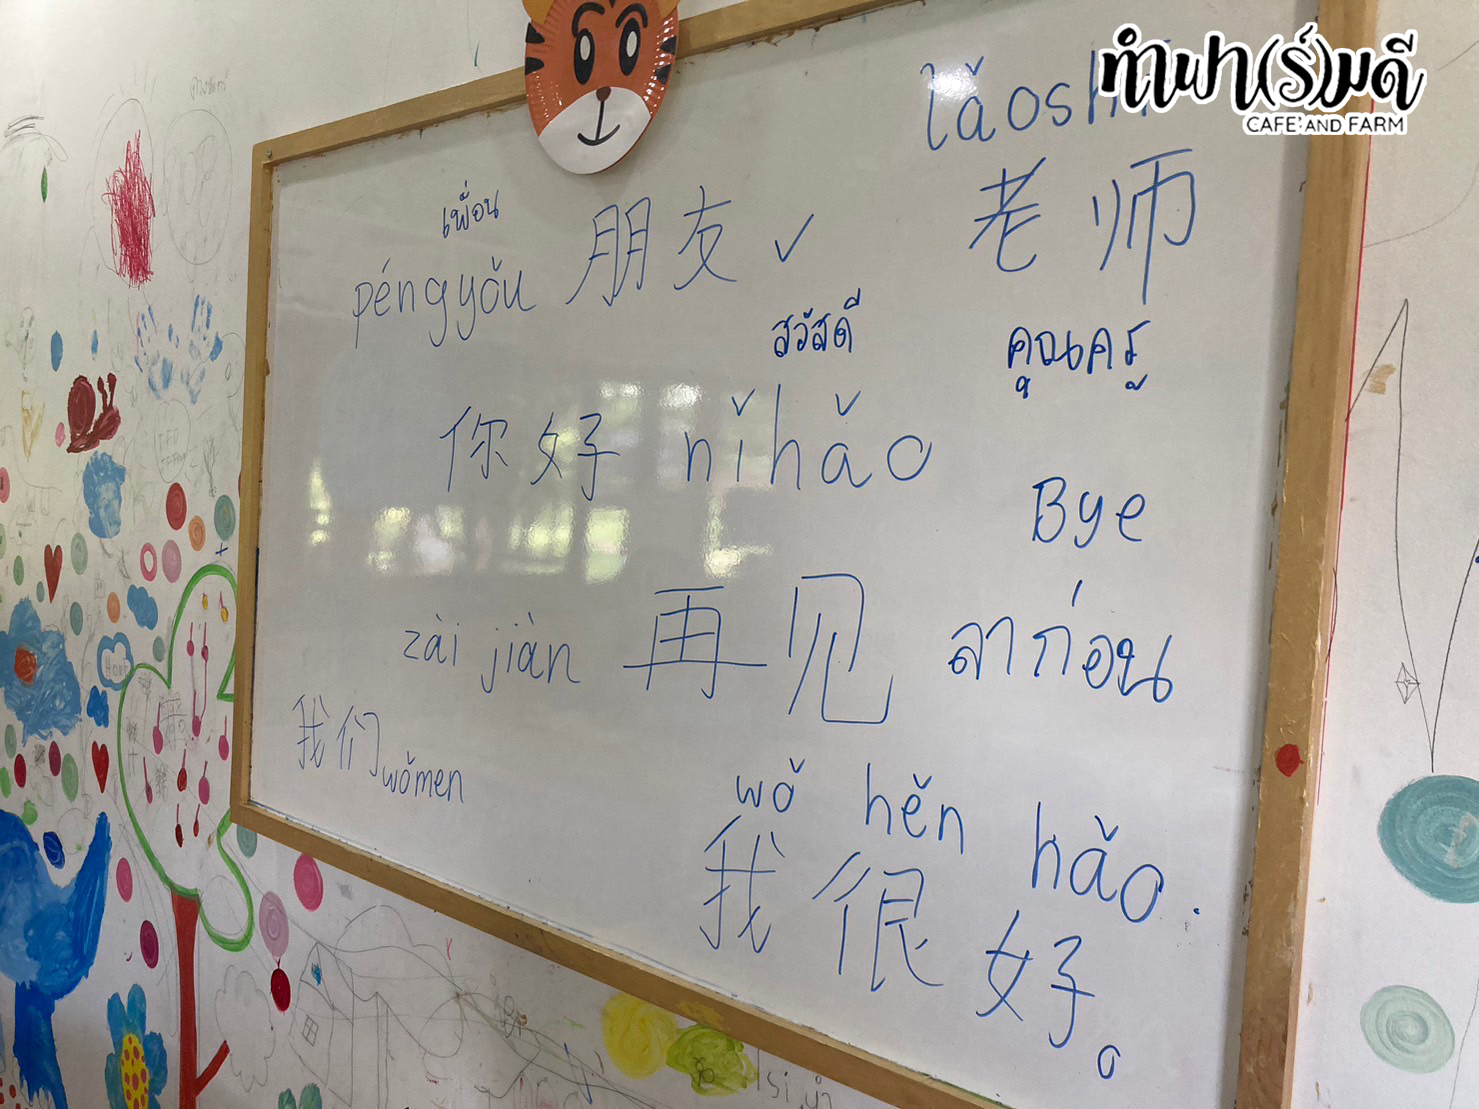 ทำฟา(ร์)มดี
CAFE' AND FARM
lǎoshī
老师
คุณครู
เพื่อน
péngyǒu 朋友 ✓
สวัสดี
你好 nǐhǎo
Bye
zài jiàn 再见 ลาก่อน
我们 wǒmen
wǒ hěn hǎo.
我很好。
Home